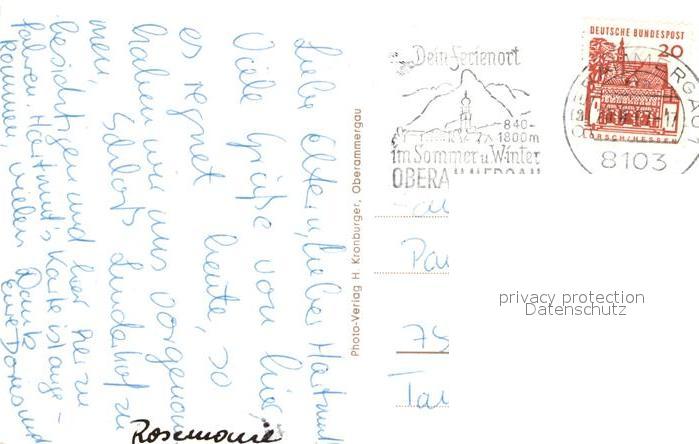 Liebe Eltern, lieber Hartmut!
Viele Grüße von hier,
es regnet heute, so
haben wir uns vorgenom
men, Schloß Linderhof zu
besichtigen und hier her zu
fahren. Hartmut's Karte ist ange-
kommen, vielen Dank
eure Doris und
Rosemarie
Photo-Verlag H. Kronburger, Oberammergau
Dein Ferienort
840-
1800m
im Sommer u. Winter
OBERAMMERGAU
DEUTSCHE BUNDESPOST
20
LORSCH/HESSEN
8103
75
privacy protection
Datenschutz